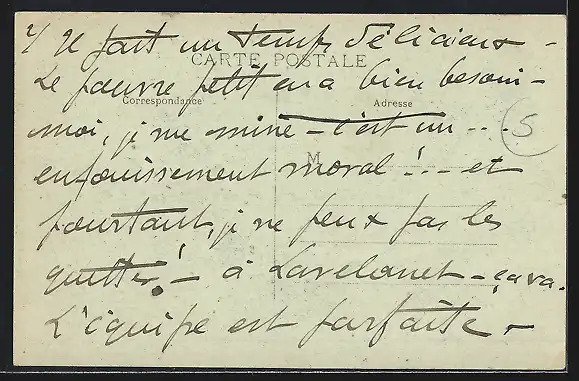 2/ Il fait un temps délicieux -
CARTE POSTALE
Le pauvre petit en a bien besoin -
Correspondance
Adresse
moi, je me mine - c'est un ...
5
M
enfouissement moral ! - - et
pourtant, je ne peux pas les
quitter ! - à Lavelanet - ça va.
L'équipe est parfaite -